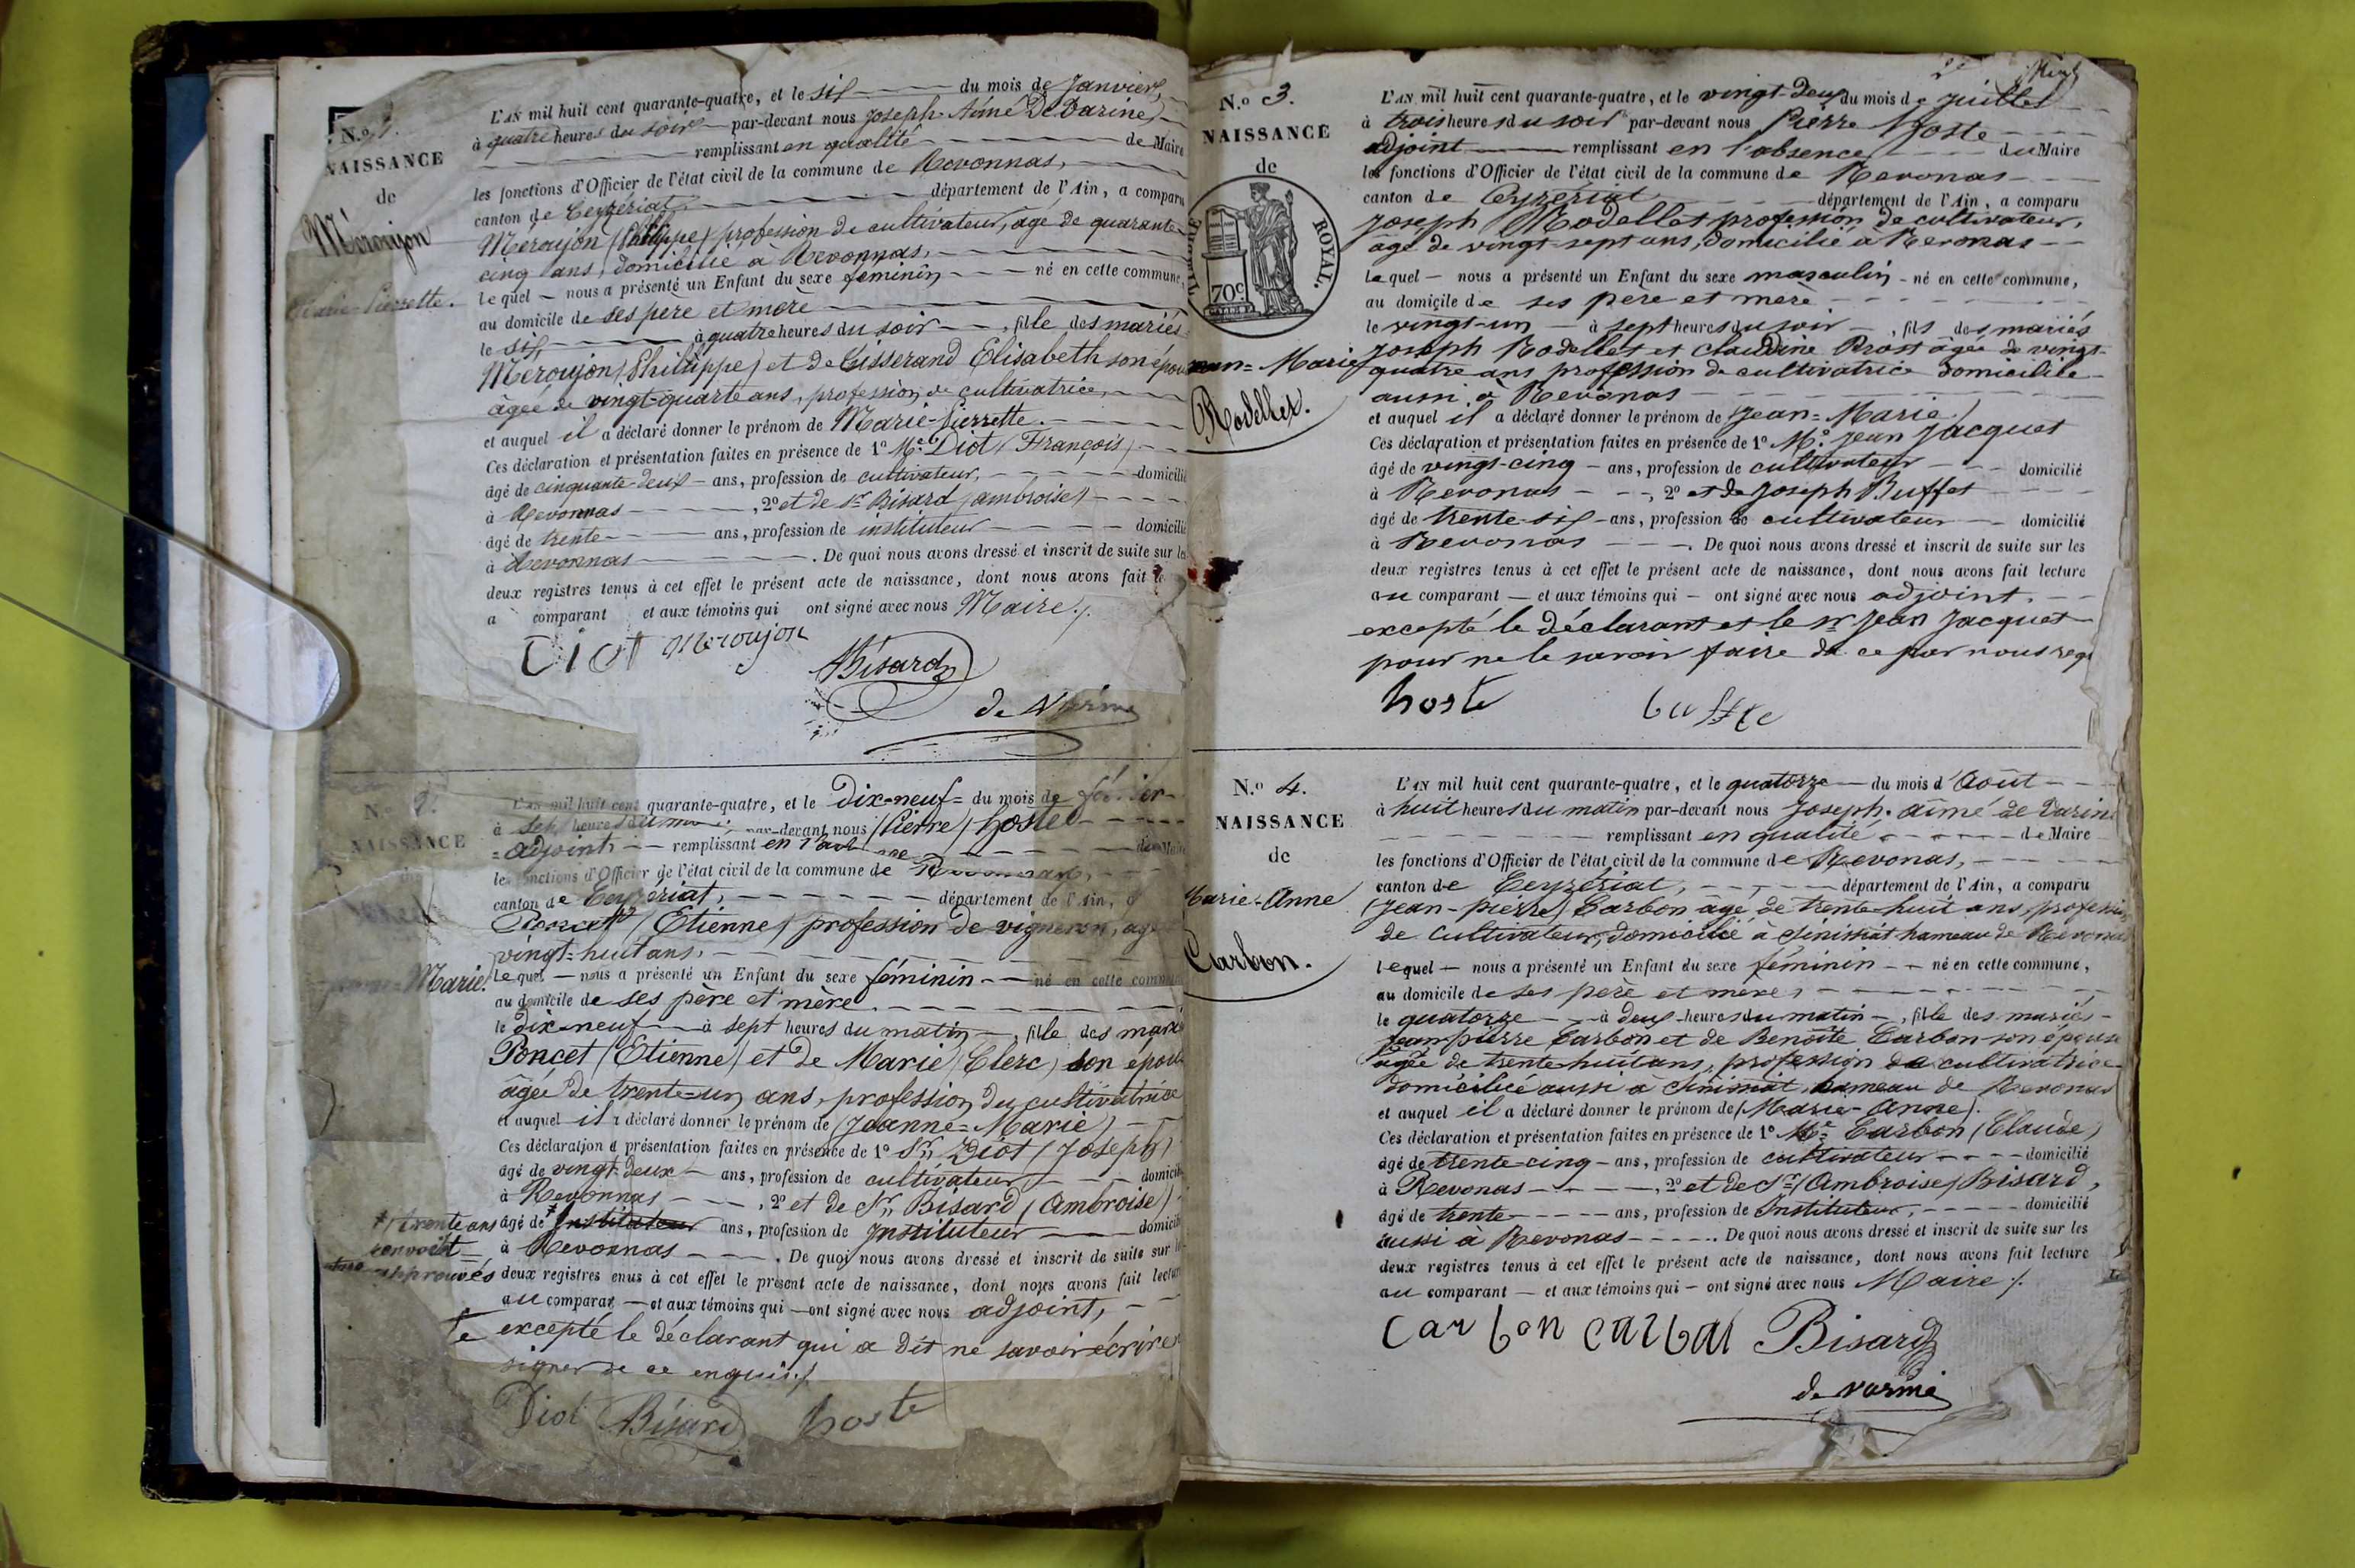 N.o 1.
NAISSANCE
de
Méroujon
Marie-Pierrette.
L'AN mil huit cent quarante-quatre, et le six du mois de Janvier,
à quatre heures du soir par-devant nous Joseph Aimé De Varine
remplissant en qualité de Maire
les fonctions d'Officier de l'état civil de la commune de Revonnas,
canton de Ceyzériat, département de l'Ain, a comparu
Méroujon (Philippe) profession de cultivateur, âgé de quarante
cinq ans, domicilié à Revonnas,
lequel nous a présenté un Enfant du sexe féminin né en cette commune,
au domicile de ses père et mère
le six, à quatre heures du soir, fille des mariés
Méroujon (Philippe) et de Tisserand Elisabeth son épou
âgée de vingt-quarte ans, profession de cultivatrice,
et auquel il a déclaré donner le prénom de Marie-Pierrette.
Ces déclaration et présentation faites en présence de 1o Mr Diot (François)
âgé de cinquante deux ans, profession de cultivateur, domicilié
à Revonnas, 2o et de Sr Bisard (ambroise)
âgé de trente ans, profession de instituteur domicilié
à Revonnas. De quoi nous avons dressé et inscrit de suite sur les
deux registres tenus à cet effet le présent acte de naissance, dont nous avons fait le
a comparant et aux témoins qui ont signé avec nous Maire ./.
Diot Méroujon
Bisard
de Varine
N.o 2.
NAISSANCE
de
Marie.
L'AN mil huit cent quarante-quatre, et le Dix-neuf du mois de février
à sept heures du par-devant nous (Pierre) hoste
adjoint remplissant en l'absence du Maire
les fonctions d'Officier de l'état civil de la commune de Revonnas,
canton de Ceyzériat, département de l'Ain, a
Poncet (Etienne) profession de vigneron, agé
vingt-huit ans,
lequel nous a présenté un Enfant du sexe féminin né en cette commune
au domicile de ses père et mère
le dix-neuf à sept heures du matin, fille des marié
Poncet (Etienne) et de Marie Clerc, son épouse
âgée de trente-un ans, profession de cultivatrice
et auquel il a déclaré donner le prénom de (Jeanne-Marie)
Ces déclaration et présentation faites en présence de 1o Sr Diot (Joseph)
âgé de vingt-deux ans, profession de cultivateur, domicilié
à Revonnas, 2o et de Sr Bisard (Ambroise)
trente ans âgé de Instituteur ans, profession de Instituteur domicilié
renvoi et à Revonnas. De quoi nous avons dressé et inscrit de suite sur
approuvés deux registres tenus à cet effet le présent acte de naissance, dont nous avons fait lecture
au comparant et aux témoins qui ont signé avec nous adjoint,
excepté le déclarant qui a dit ne savoir écrire
signer de ce enquis ./.
Diot Bisard hoste
N.o 3.
NAISSANCE
de
ROYAL.
70c
Jean-Marie
Rodellet.
L'AN mil huit cent quarante-quatre, et le vingt-deux du mois de juillet
à trois heures du soir par-devant nous Pierre hoste
adjoint remplissant en l'absence du Maire
les fonctions d'Officier de l'état civil de la commune de Revonas
canton de Ceyzériat département de l'Ain, a comparu
Joseph Rodellet profession de cultivateur,
âgé de vingt-sept ans, domicilié à Revonas
lequel nous a présenté un Enfant du sexe masculin né en cette commune,
au domicile de ses père et mère
le vingt-un à sept heures du soir, fils des mariés
Joseph Rodellet et Claudine Prost âgée de vingt-
quatre ans profession de cultivatrice domiciliée
aussi à Revonas
et auquel il a déclaré donner le prénom de (Jean-Marie)
Ces déclaration et présentation faites en présence de 1o Mr Jean Jacquet
âgé de vingt-cinq ans, profession de cultivateur domicilié
à Revonas, 2o et de Joseph Buffet
âgé de trente-six ans, profession de cultivateur domicilié
à Revonas. De quoi nous avons dressé et inscrit de suite sur les
deux registres tenus à cet effet le présent acte de naissance, dont nous avons fait lecture
au comparant et aux témoins qui ont signé avec nous adjoint.
excepté le déclarant et le sr Jean Jacquet
pour ne le savoir faire de ce par nous requ
hoste buffte
N.o 4.
NAISSANCE
de
Marie-Anne
Carbon.
L'AN mil huit cent quarante-quatre, et le quatorze du mois d'Août
à huit heures du matin par-devant nous Joseph aimé de Varine
remplissant en qualité de Maire
les fonctions d'Officier de l'état civil de la commune de Revonas,
canton de Ceyzériat, département de l'Ain, a comparu
(Jean-pierre) Carbon âgé de trente-huit ans, profession
de cultivateur, domicilié à Sinissiat hameau de Revonas
lequel nous a présenté un Enfant du sexe féminin né en cette commune,
au domicile de ses père et mère,
le quatorze à deux heures du matin, fille des mariés
Jean pierre Carbon et de Benoîte Carbon son épouse
agée de trente-huit ans, profession de cultivatrice
domiciliée aussi à Sinissiat, hameau de Revonas
et auquel il a déclaré donner le prénom de (Marie-Anne).
Ces déclaration et présentation faites en présence de 1o Mr Carbon (Claude)
âgé de trente-cinq ans, profession de cultivateur domicilié
à Revonas, 2o et de Sr (Ambroise) Bisard,
âgé de trente ans, profession de Instituteur, domicilié
aussi à Revonas. De quoi nous avons dressé et inscrit de suite sur les
deux registres tenus à cet effet le présent acte de naissance, dont nous avons fait lecture
au comparant et aux témoins qui ont signé avec nous Maire ./.
Carbon Carbon Bisard
de varine